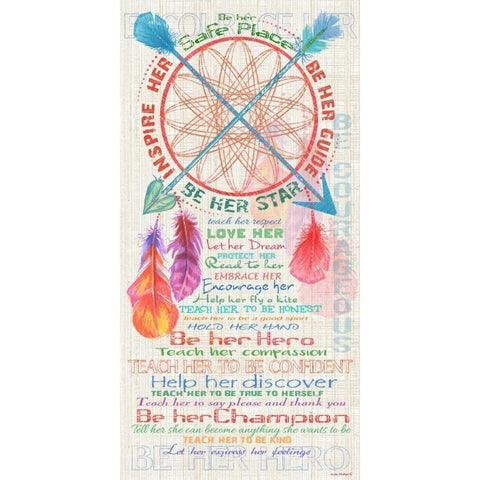 ENCOURAGE HER
Be her
Safe Place
INSPIRE HER
BE HER GUIDE
BE HER STAR
BE COURAGEOUS
teach her respect
LOVE HER
Let her Dream
PROTECT HER
Read to her
EMBRACE HER
Encourage her
Help her fly a kite
TEACH HER TO BE HONEST
Teach her to be a good sport
HOLD HER HAND
Be her Hero
Teach her compassion
TEACH HER TO BE CONFIDENT
Help her discover
TEACH HER TO BE TRUE TO HERSELF
Teach her to say please and thank you
Be her Champion
Tell her she can become anything she wants to be
TEACH HER TO BE KIND
Let her express her feelings
BE HER HERO